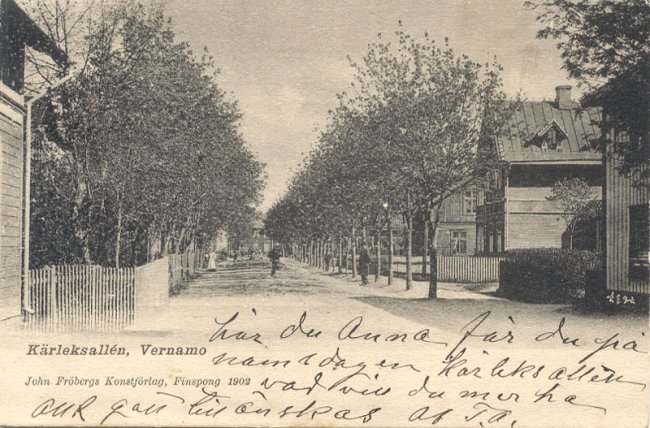 Kärleksallén, Vernamo
John Fröbergs Konstförlag, Finspong 1902
här du Anna får du på
namnsdagen Kärleksallén
vad vill du mer ha
allt gott tillönskas af T.A.